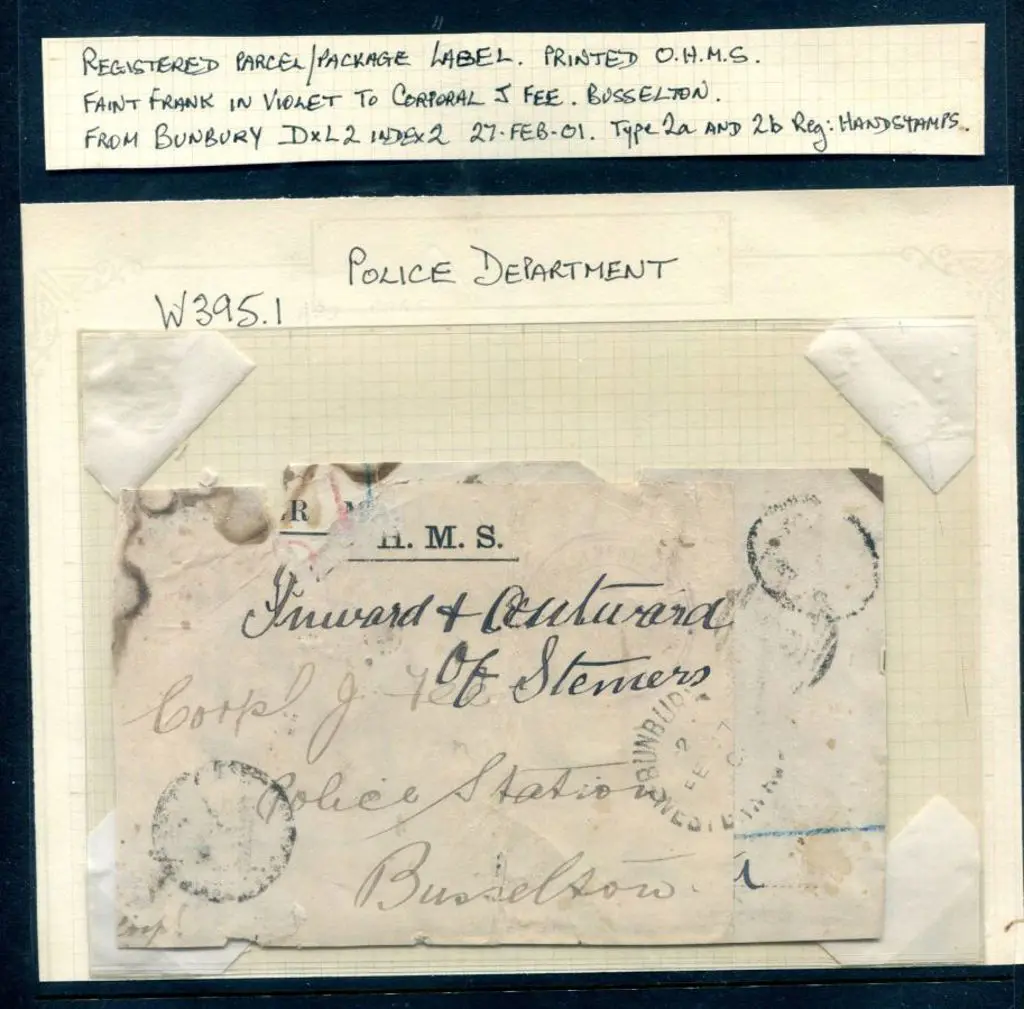 REGISTERED PARCEL/PACKAGE LABEL. PRINTED O.H.M.S.
FAINT FRANK IN VIOLET TO CORPORAL J FEE. BUSSELTON.
FROM BUNBURY DXL2 INDEX2 27-FEB-01. Type 2a AND 2b Reg: HANDSTAMPS.
POLICE DEPARTMENT
W395.1
H. M. S.
Inward & Outward
Of Stemers
Corpl J Fee
Police Station
BUNBURY
Busselton.